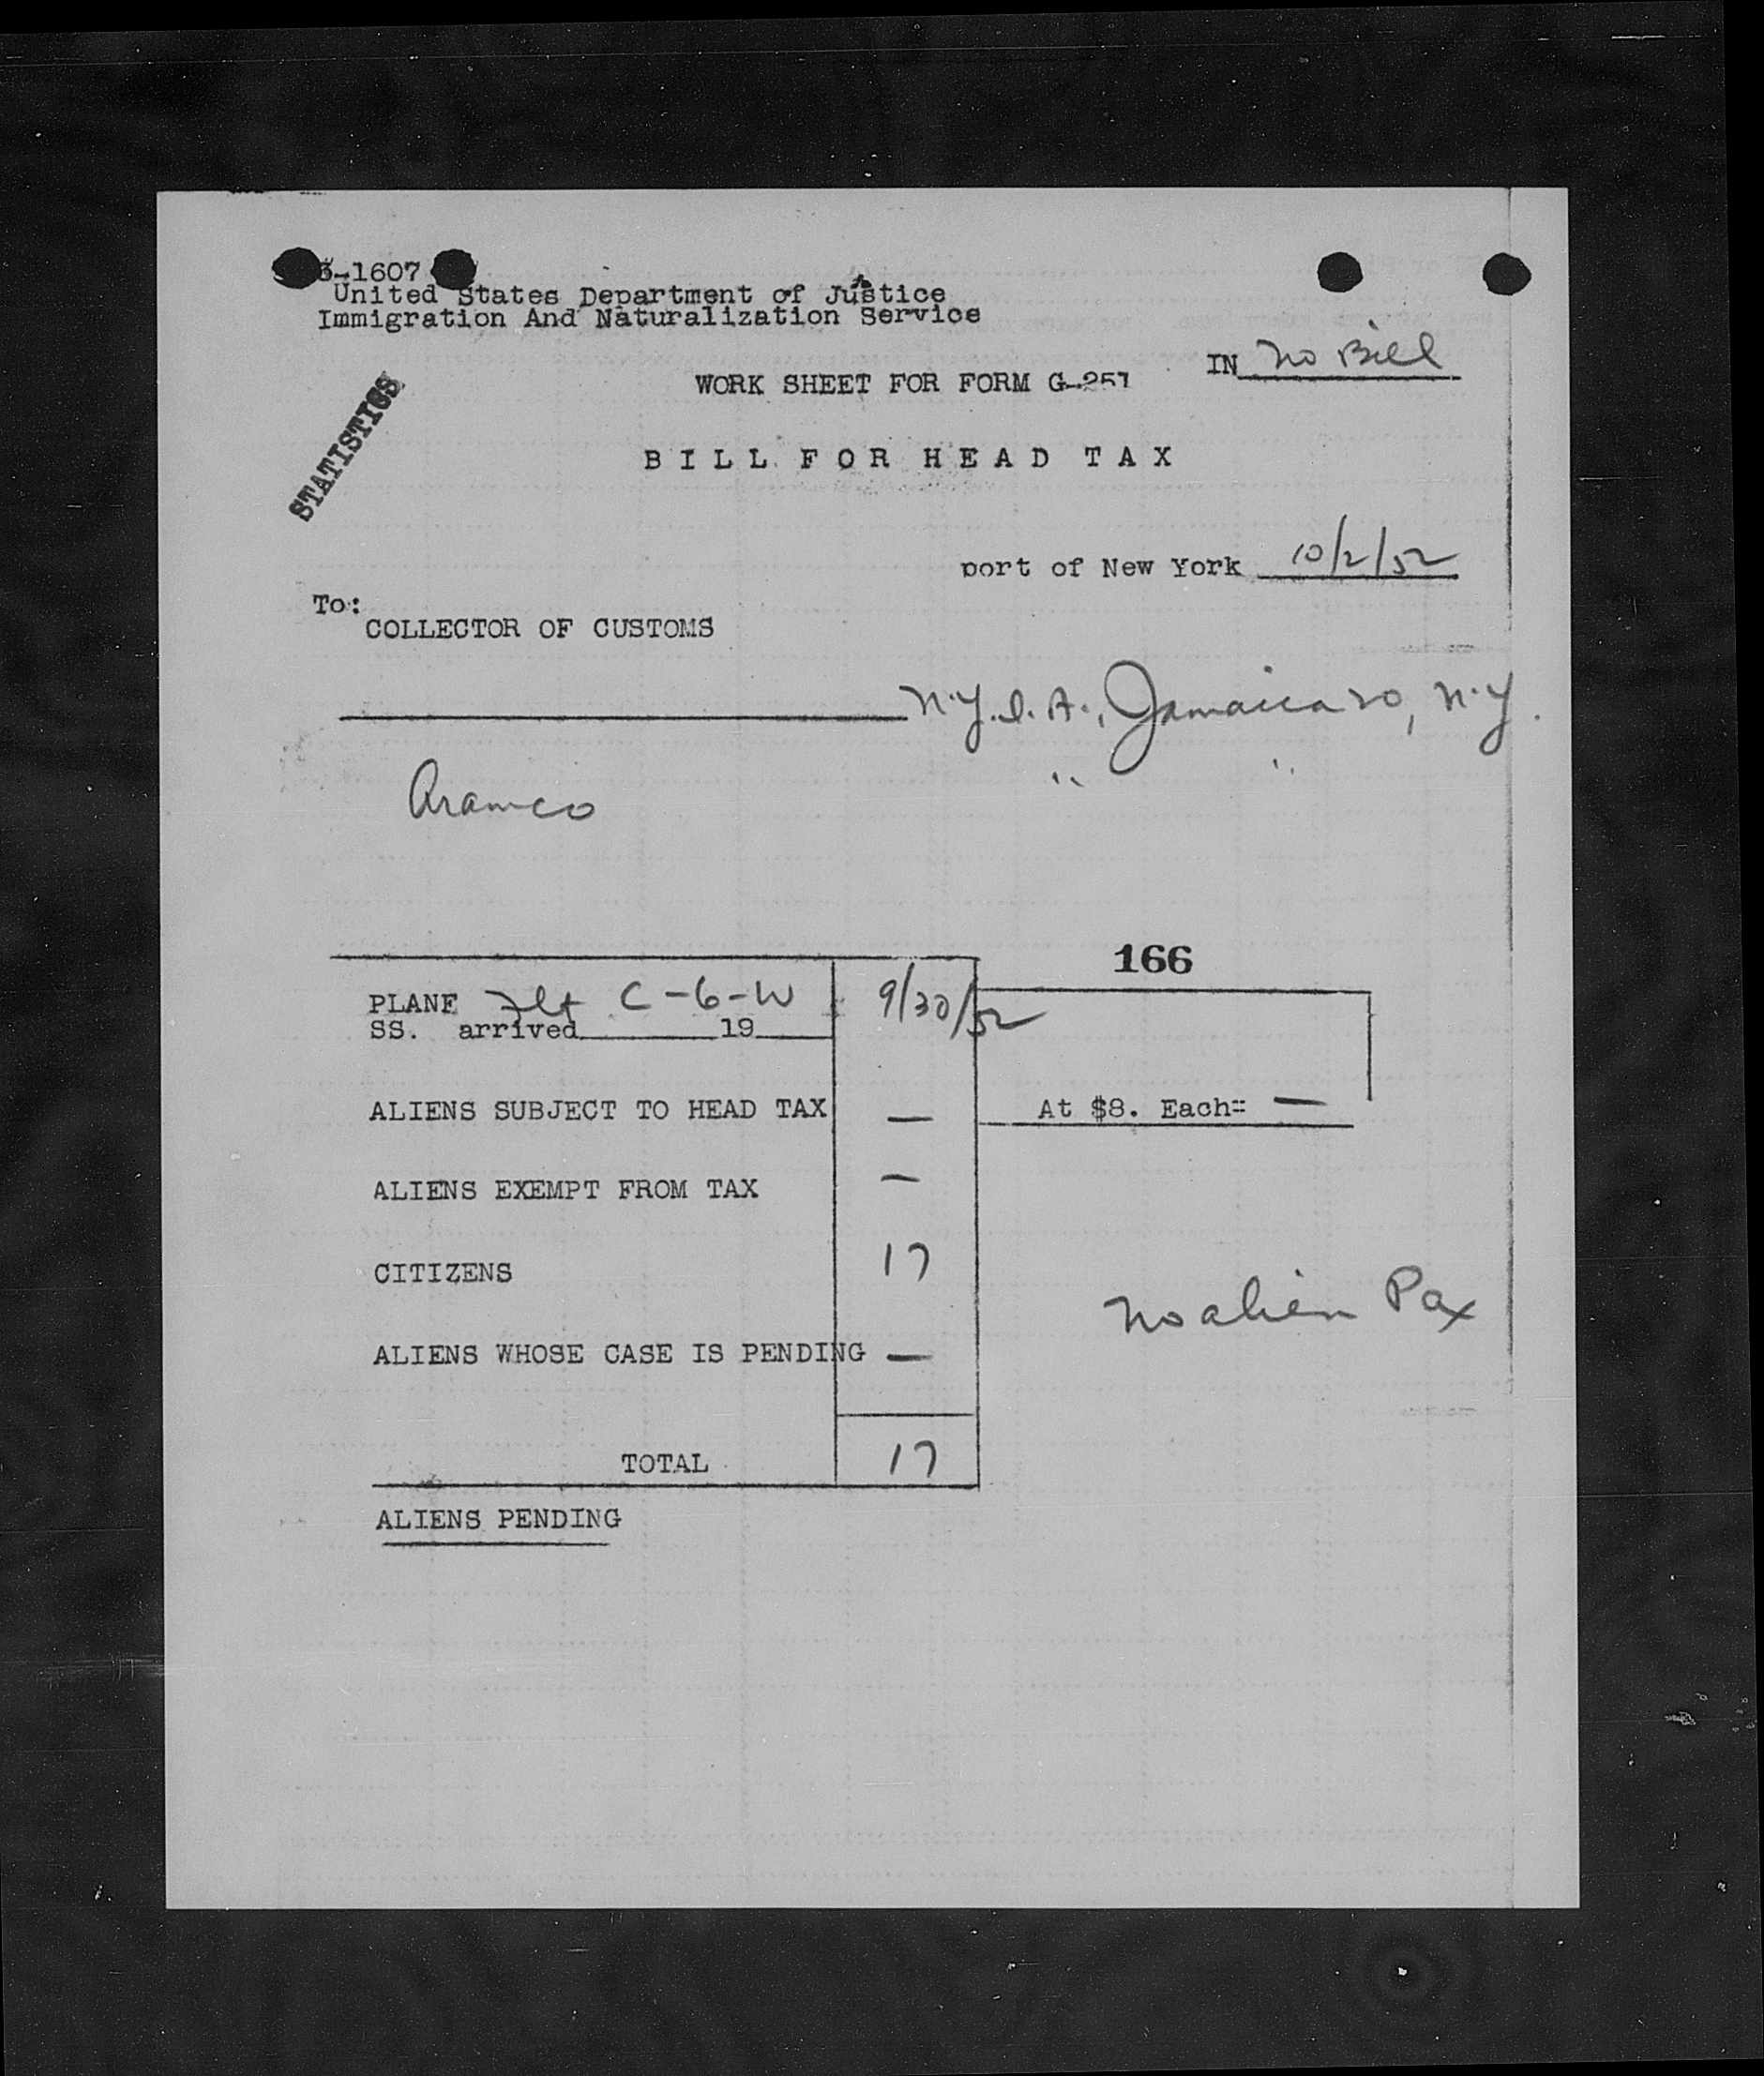 3-1607
United States Department of Justice
Immigration And Naturalization Service
IN No Bill
WORK SHEET FOR FORM G-257
STATISTICS
BILL FOR HEAD TAX
port of New York 10/2/52
To:
COLLECTOR OF CUSTOMS
N.Y.I.A., Jamaica 20, N.Y.
" "
Aramco
166
PLANE Flt C-6-W 9/30/52
SS. arrived 19
ALIENS SUBJECT TO HEAD TAX — At $8. Each= —
ALIENS EXEMPT FROM TAX —
CITIZENS 17
No alien Pax
ALIENS WHOSE CASE IS PENDING —
TOTAL 17
ALIENS PENDING